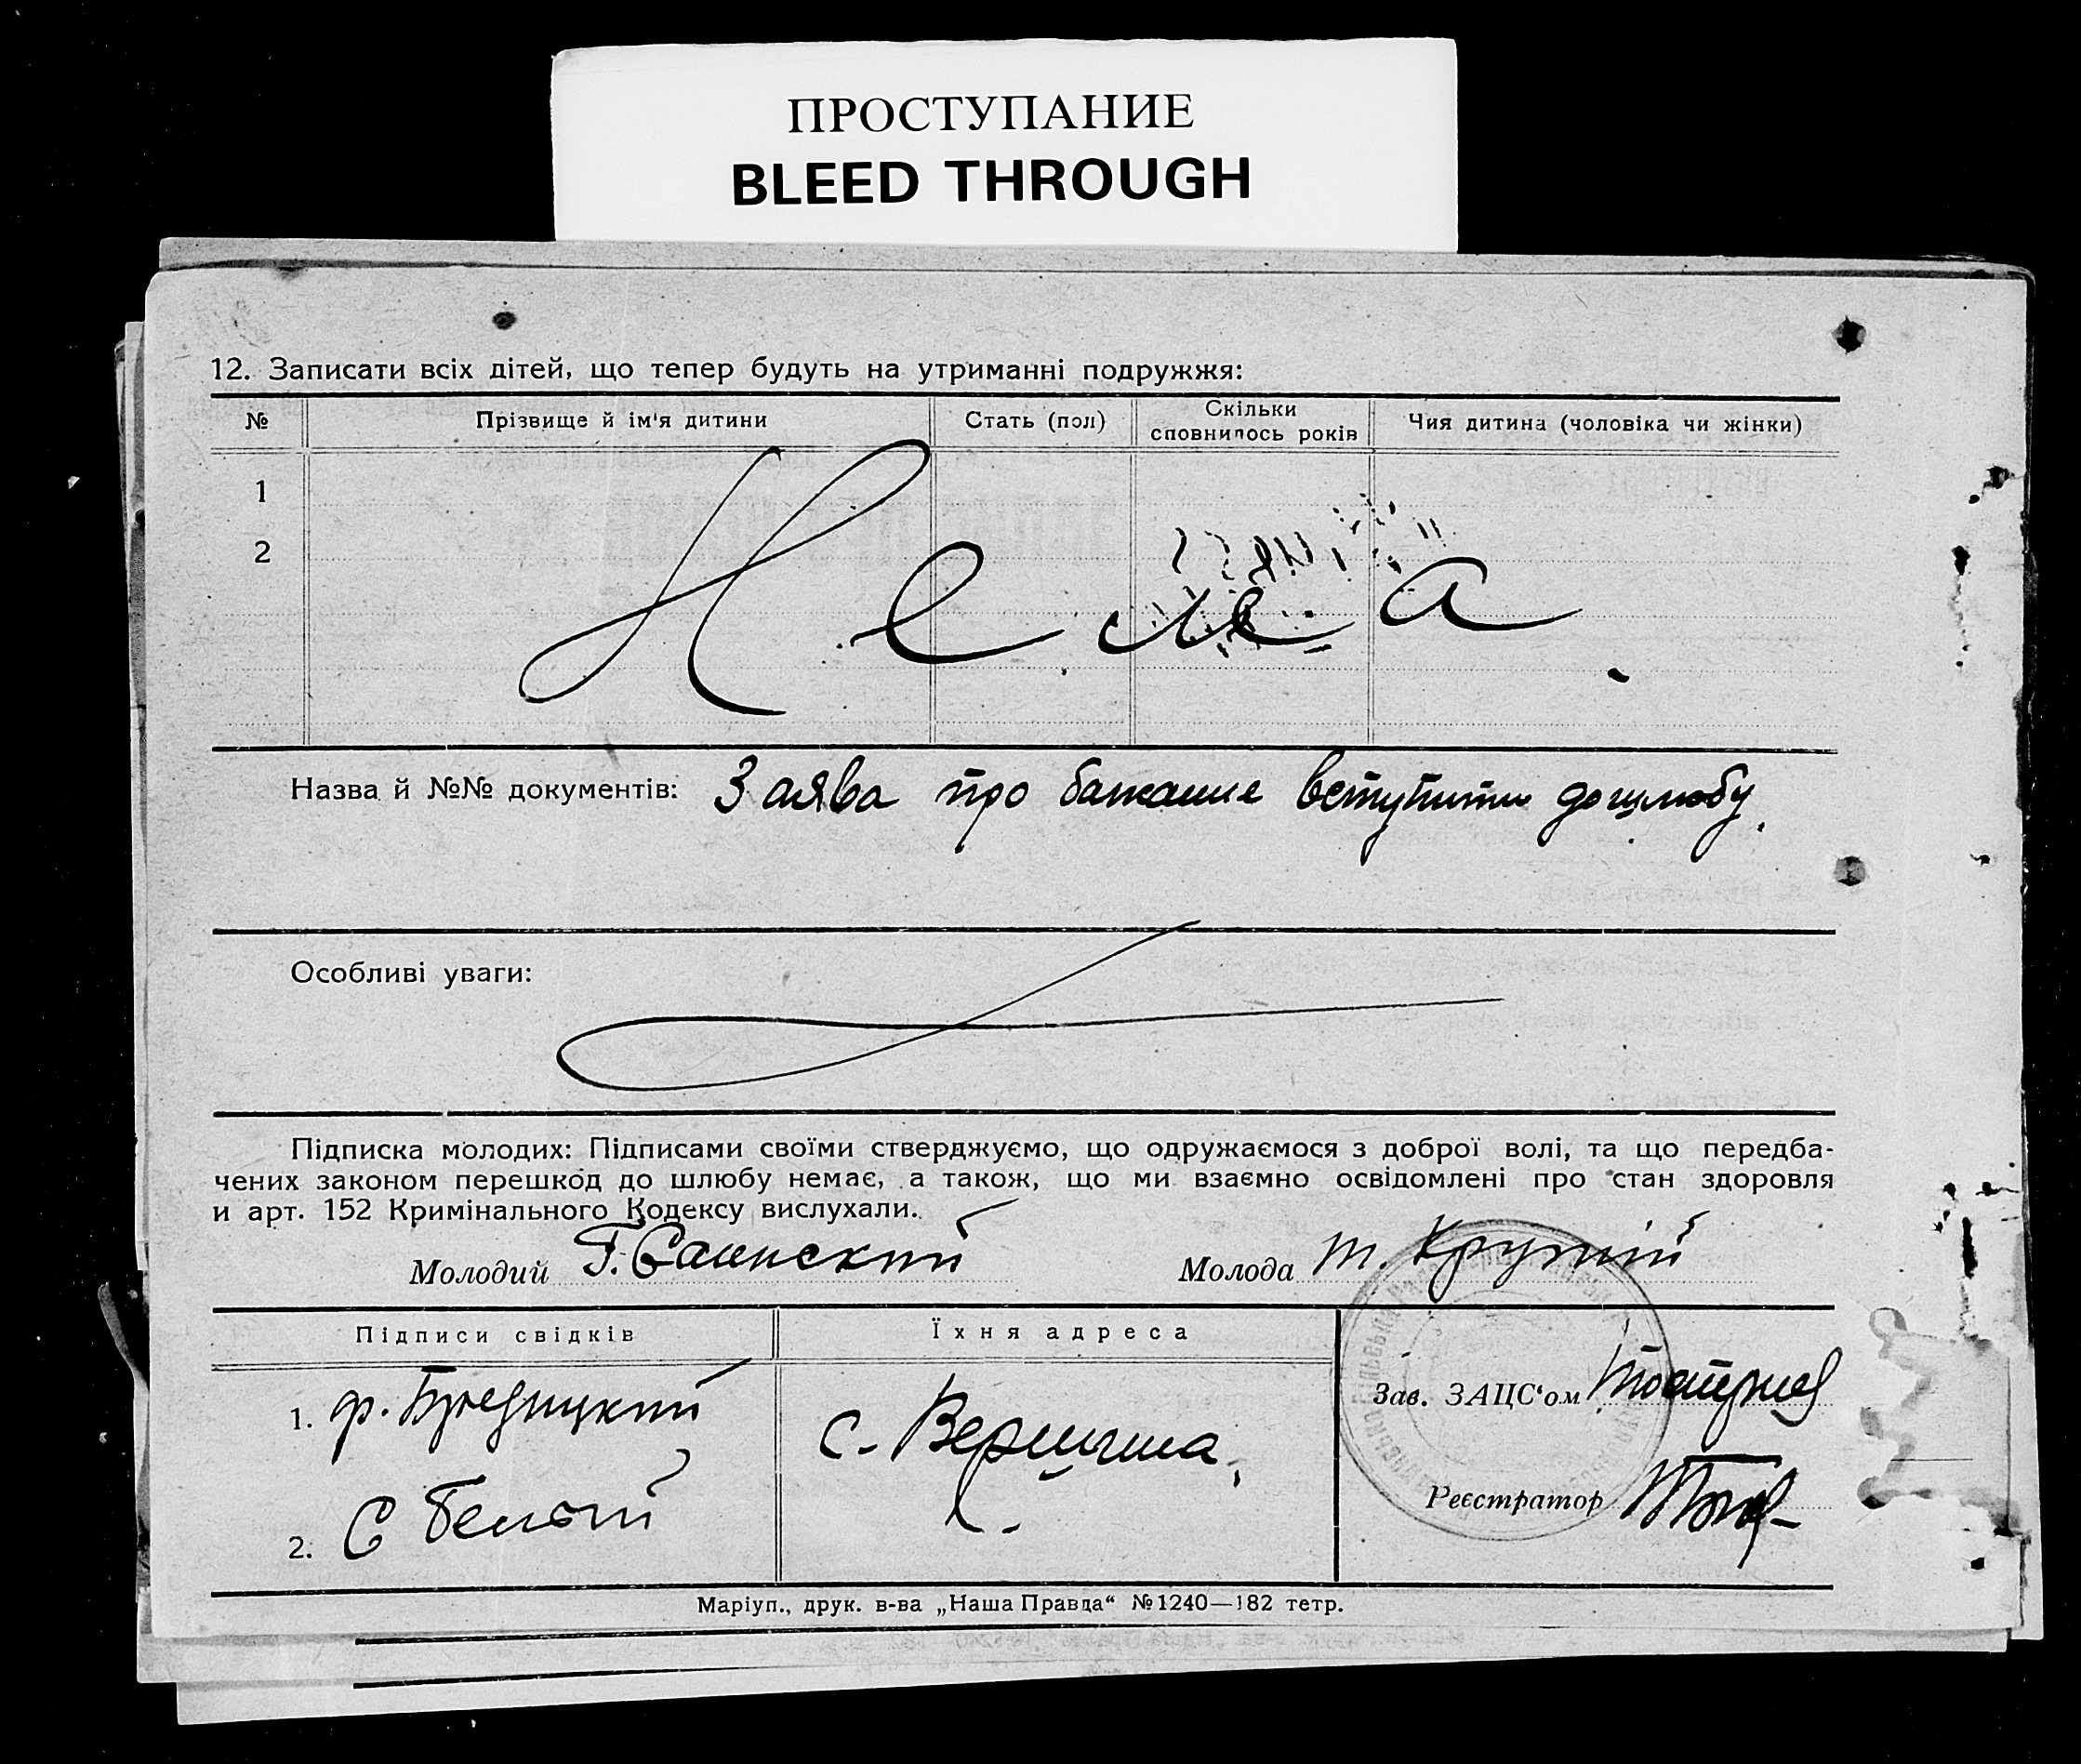 ПРОСТУПАНИЕ
BLEED THROUGH
12. Записати всіх дітей, що тепер будуть на утриманні подружжя:
№ Прізвище й ім'я дитини Стать (пол) Скільки сповнилось років Чия дитина (чоловіка чи жінки)
1
2
Нема.
Назва й №№ документів: Заява про бажание вступити до шлюбу.
Особливі уваги:
Підписка молодих: Підписами своїми стверджуємо, що одружаємося з доброї волі, та що передба-
чених законом перешкод до шлюбу немає, а також, що ми взаємно освідомлені про стан здоровля
и арт. 152 Кримінального Кодексу вислухали.
Молодий Г. Молода Т.
Підписи свідків Їхня адреса
1. Ф. с. Вершина. Зав. ЗАЦС'ом
2. С Белый Реєстратор
Маріуп., друк. в-ва „Наша Правда“ №1240—182 тетр.